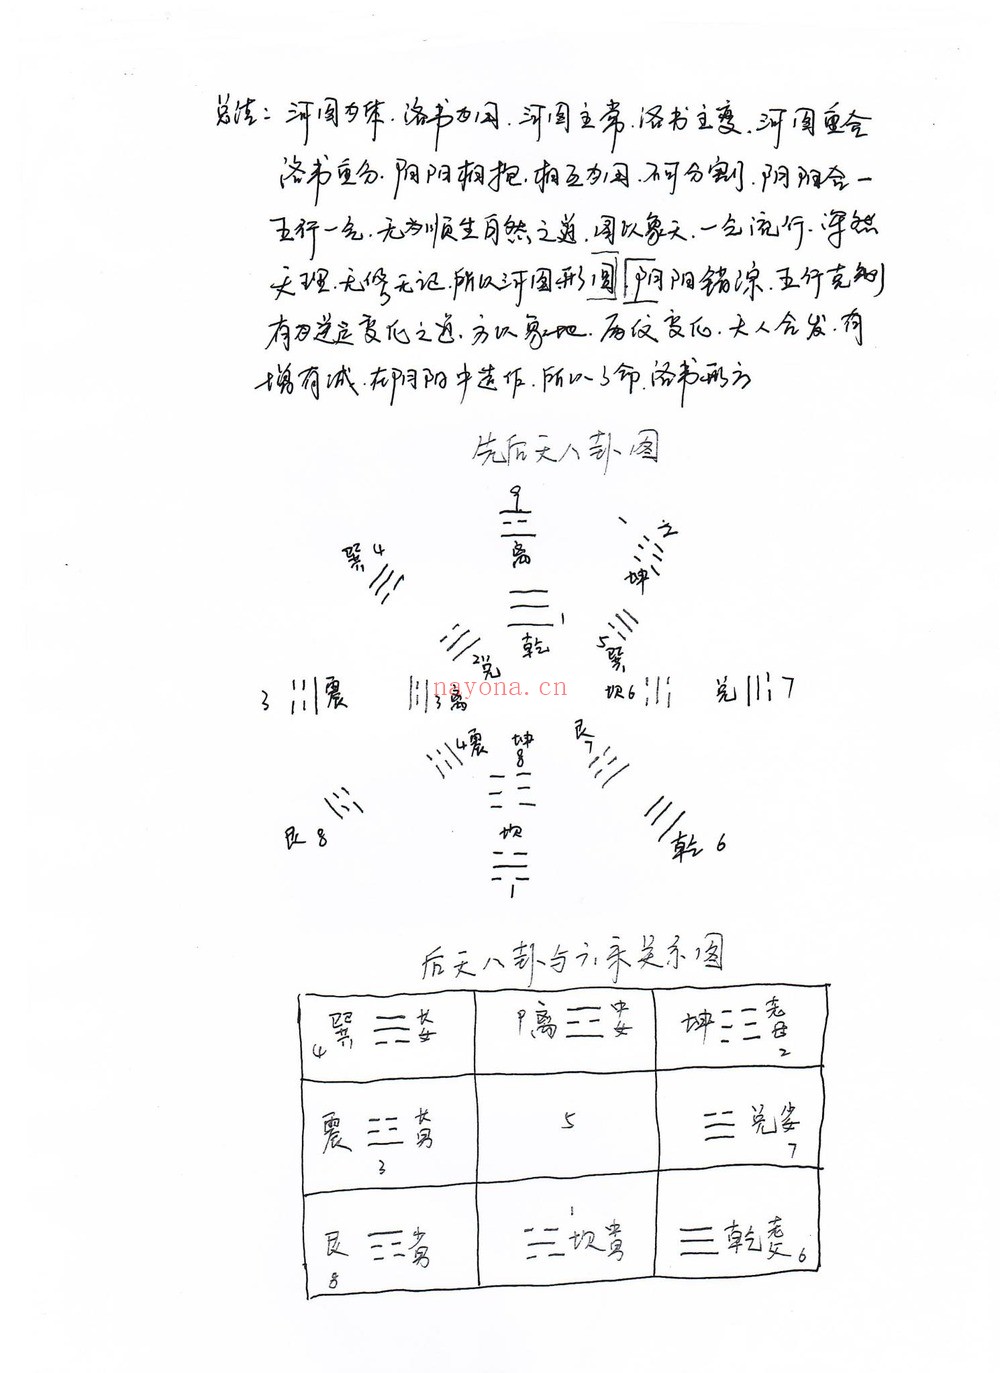 总结：河图为体．洛书为用．河图主常．洛书主变．河图重合
洛书重分．阴阳相抱．相互为用．不可分割．阴阳合一
五行一气．无为顺生自然之道．圆以象天．一气流行．浑然
天理．无修无证．所以河图形圆 阴阳错综．五行克制
有为逆运变化之道．方以象地．变化．天人合发．有
增有减．在阴阳中造作．所以了命．洛书形方
先后天八卦图
9
离
巽 4
2
坤
乾 1
2 兑
5 巽
3 震
3 离
坎 6
兑 7
4 震
坤 8
艮 7
艮 8
坎
1
乾 6
后天八卦与六亲关系图
巽 长女 4
9 离 中女
坤 老母 2
震 长男 3
5
兑 少女 7
艮 少男 8
1 坎 中男
乾 老父 6
nayona.cn